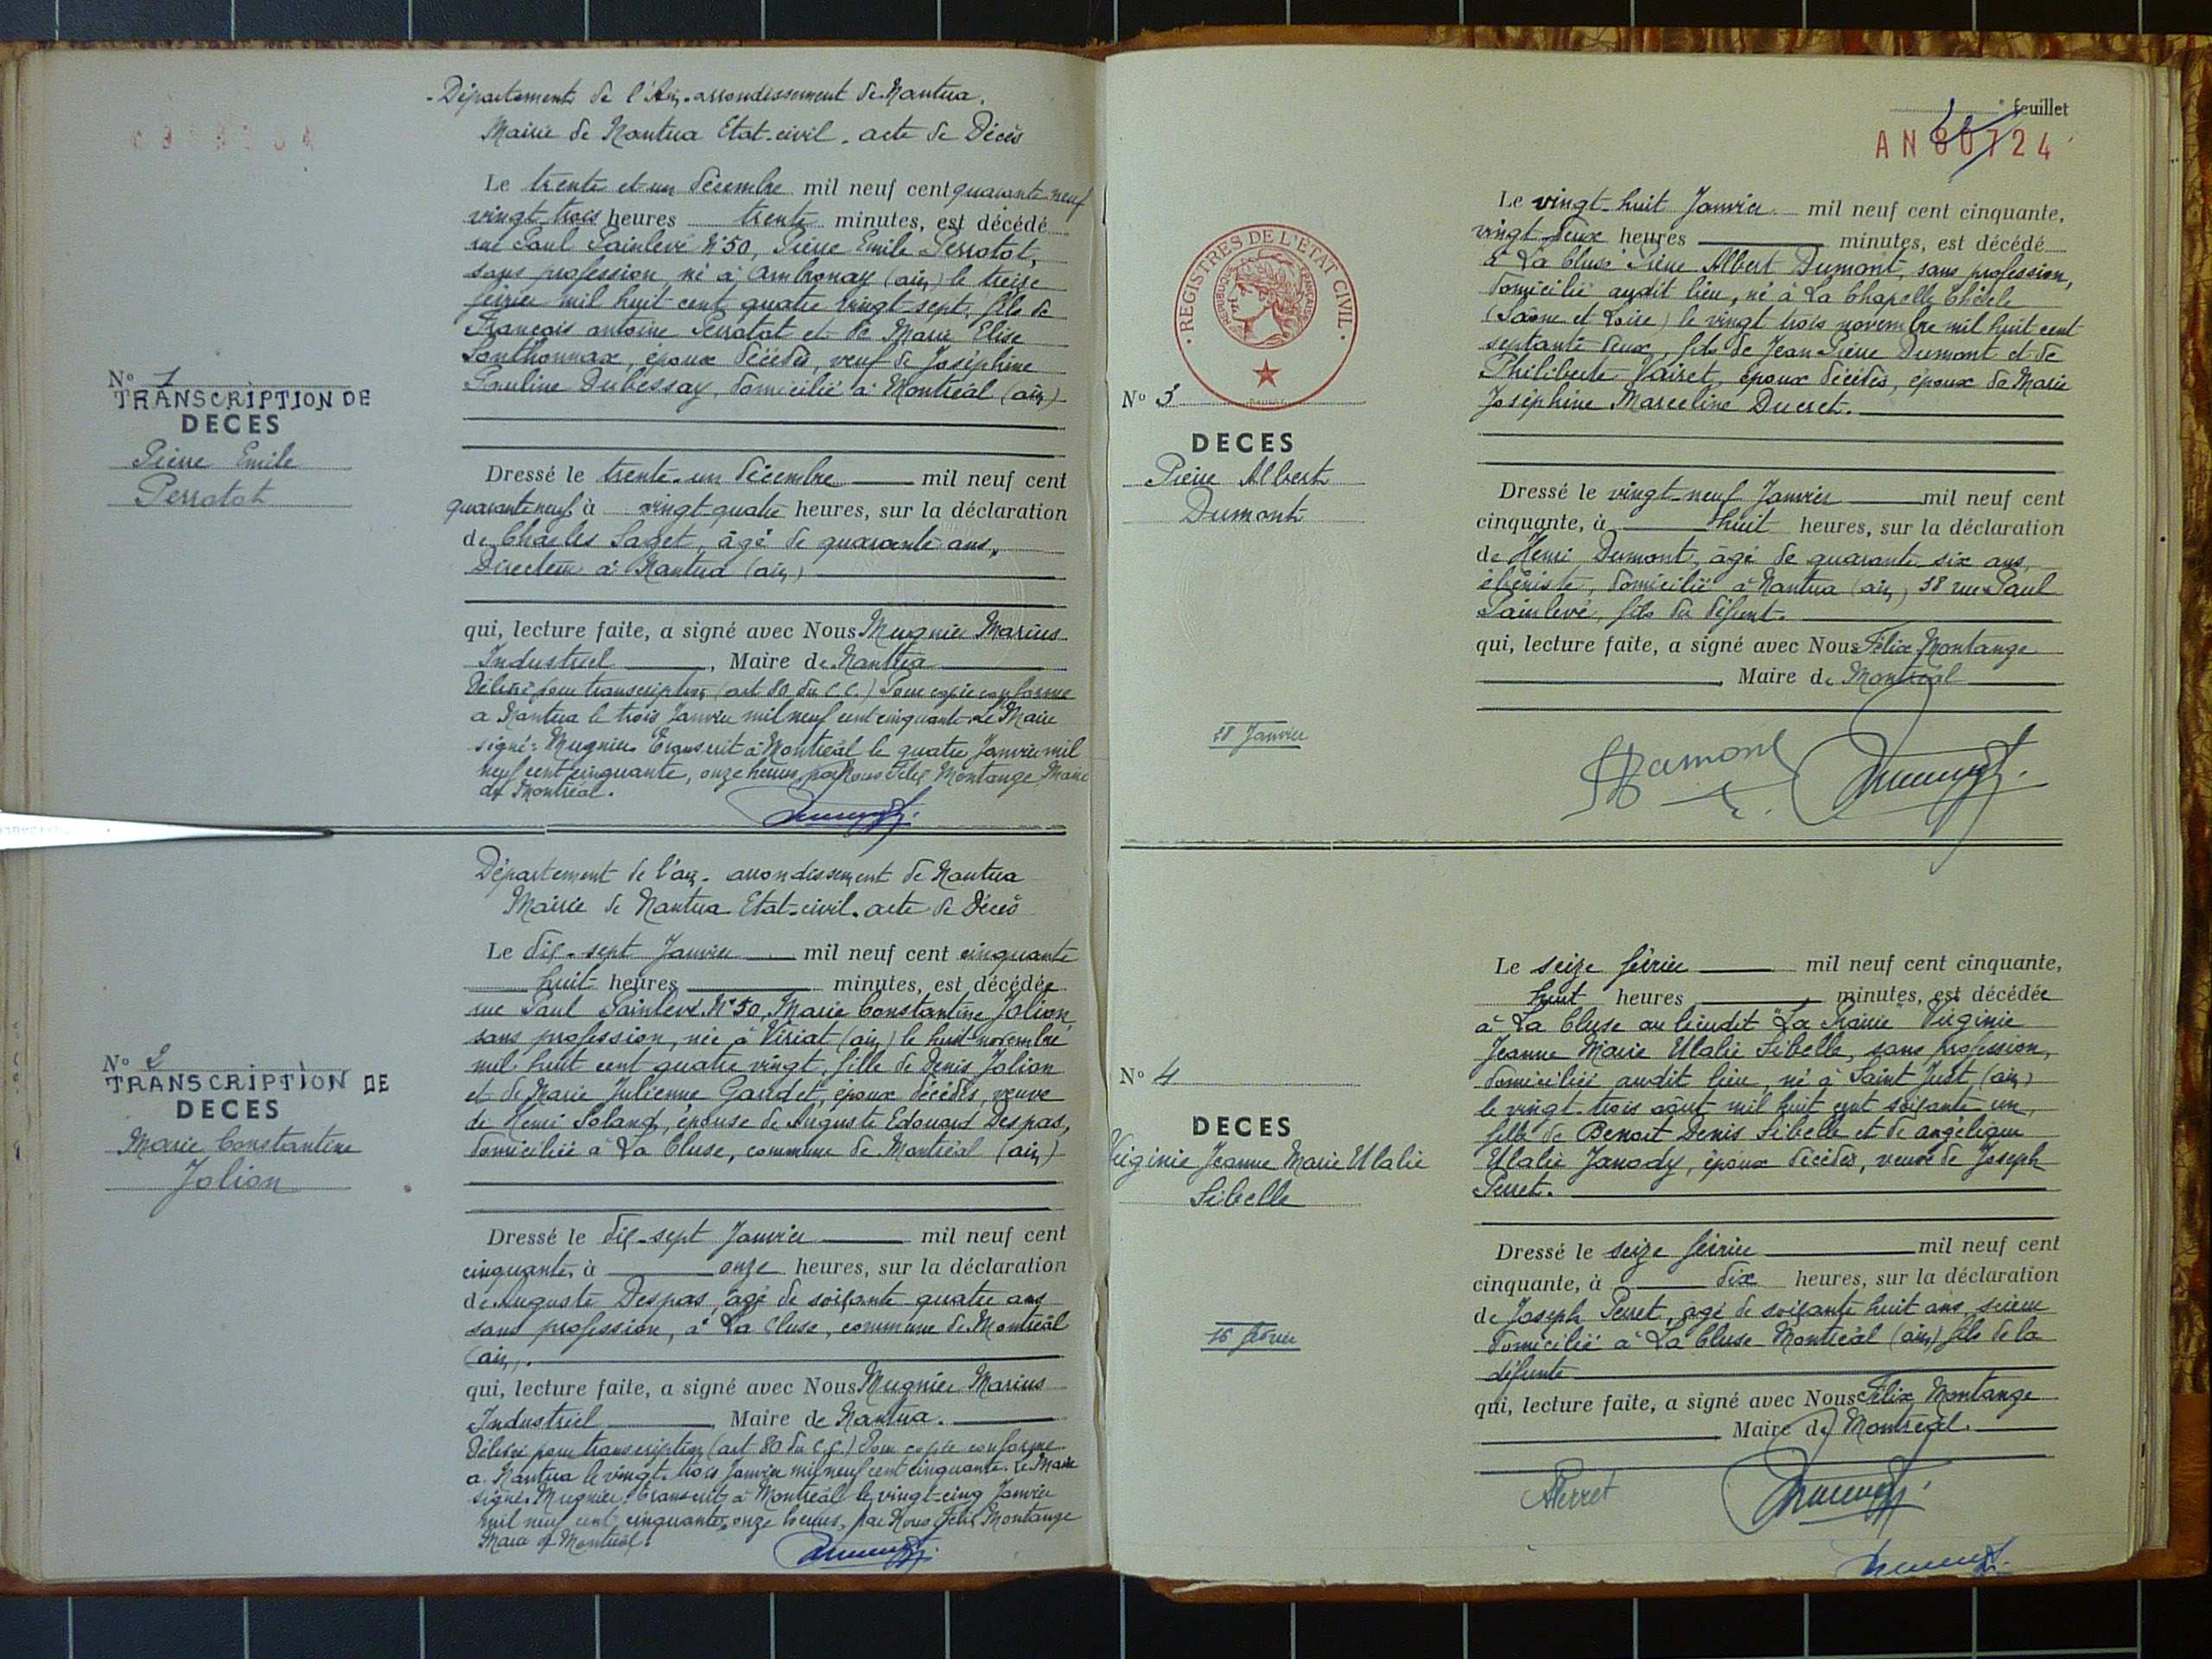 Départements de l'Ain. arrondissement de Nantua.
Mairie de Nantua Etat-civil. acte de Décès
Le trente et un décembre mil neuf cent quarante-neuf
vingt trois heures trente minutes, est décédé
rue Paul Painlevé N°50, Pierre Emile Perrotot,
sans profession né à Ambronay (ain) le treize
février mil huit cent quatre vingt sept, fils de
François antoine Perrotot et de Marie Elise
Ponthonnax, époux décédés, veuf de Joséphine
Pauline Dubessay, domicilié à Montréal (ain)
N° 1
TRANSCRIPTION DE
DECES
Pierre Emile
Perrotot
Dressé le trente-un décembre mil neuf cent
quarante neuf à vingt-quatre heures, sur la déclaration
de Charles Saget, âgé de quarante ans,
Directeur à Nantua (ain)
qui, lecture faite, a signé avec Nous Mugnier Marius
Industriel, Maire de Nantua
Délivré pour transcription (art 80 du C.C.) Pour copie conforme
a Nantua le trois Janvier mil neuf cent cinquante. Le Maire
signé: Mugnier. Transcrit à Montréal le quatre Janvier mil
neuf cent cinquante, onze heures, par Nous Félix Montange Maire
de Montréal.
Département de l'ain. arrondissement de Nantua
Mairie de Nantua Etat-civil. acte de Décès
Le dix-sept Janvier mil neuf cent cinquante
huit heures minutes, est décédée
rue Paul Painlevé N°50, Marie Constantine Jolion,
sans profession, née à Viriat (ain) le huit novembre
mil huit cent quatre vingt, fille de Denis Jolion
et de Marie Julienne Gaudet, époux décédés, veuve
de Henri Soland, épouse de Auguste Edouard Despas,
domiciliée à La Cluse, commune de Montréal (ain)
N° 2
TRANSCRIPTION DE
DECES
Marie Constantine
Jolion
Dressé le dix-sept Janvier mil neuf cent
cinquante, à onze heures, sur la déclaration
de Auguste Despas, âgé de soixante quatre ans
sans profession, à La Cluse, commune de Montréal
(ain).
qui, lecture faite, a signé avec Nous Mugnier Marius
Industriel, Maire de Nantua.
Délivré pour transcription (art 80 du C.C.) Pour copie conforme
a Nantua le vingt trois Janvier mil neuf cent cinquante. Le Maire
signé: Mugnier. Transcrit à Montréal le vingt-cinq Janvier
mil neuf cent cinquante, onze heures, par Nous Félix Montange
Maire de Montréal.
feuillet
AN 80724
Le vingt-huit Janvier mil neuf cent cinquante,
vingt deux heures minutes, est décédé
à La Cluse Pierre Albert Dumont, sans profession,
domicilié audit lieu, né à La Chapelle Thècle
(Saône et Loire) le vingt trois novembre mil huit cent
septante deux, fils de Jean Pierre Dumont et de
Philiberte Vairet, époux décédés, époux de Marie
Joséphine Marceline Ducret.
REGISTRES DE L'ETAT CIVIL
REPUBLIQUE FRANÇAISE
N° 3
DECES
Pierre Albert
Dumont
Dressé le vingt-neuf Janvier mil neuf cent
cinquante, à huit heures, sur la déclaration
de Henri Dumont, âgé de quarante six ans,
ébéniste, domicilié à Nantua (ain) 38 rue Paul
Painlevé, fils du défunt.
qui, lecture faite, a signé avec Nous Félix Montange
Maire de Montréal
28 Janvier
HDumont
Le seize février mil neuf cent cinquante,
huit heures minutes, est décédée
à La Cluse au lieudit "La Prairie" Virginie
Jeanne Marie Ulalie Sibelle, sans profession,
domiciliée audit lieu, né à Saint Just (ain)
le vingt-trois août mil huit cent soixante un,
fille de Benoit Denis Sibelle et de angélique
Ulalie Janody, époux décédés, veuve de Joseph
Perret.
N° 4
DECES
Virginie Jeanne Marie Ulalie
Sibelle
Dressé le seize février mil neuf cent
cinquante, à dix heures, sur la déclaration
de Joseph Perret, âgé de soixante huit ans, scieur
domicilié à La Cluse Montréal (ain) fils de la
défunte
qui, lecture faite, a signé avec Nous Félix Montange
Maire de Montréal.
16 février
Perret